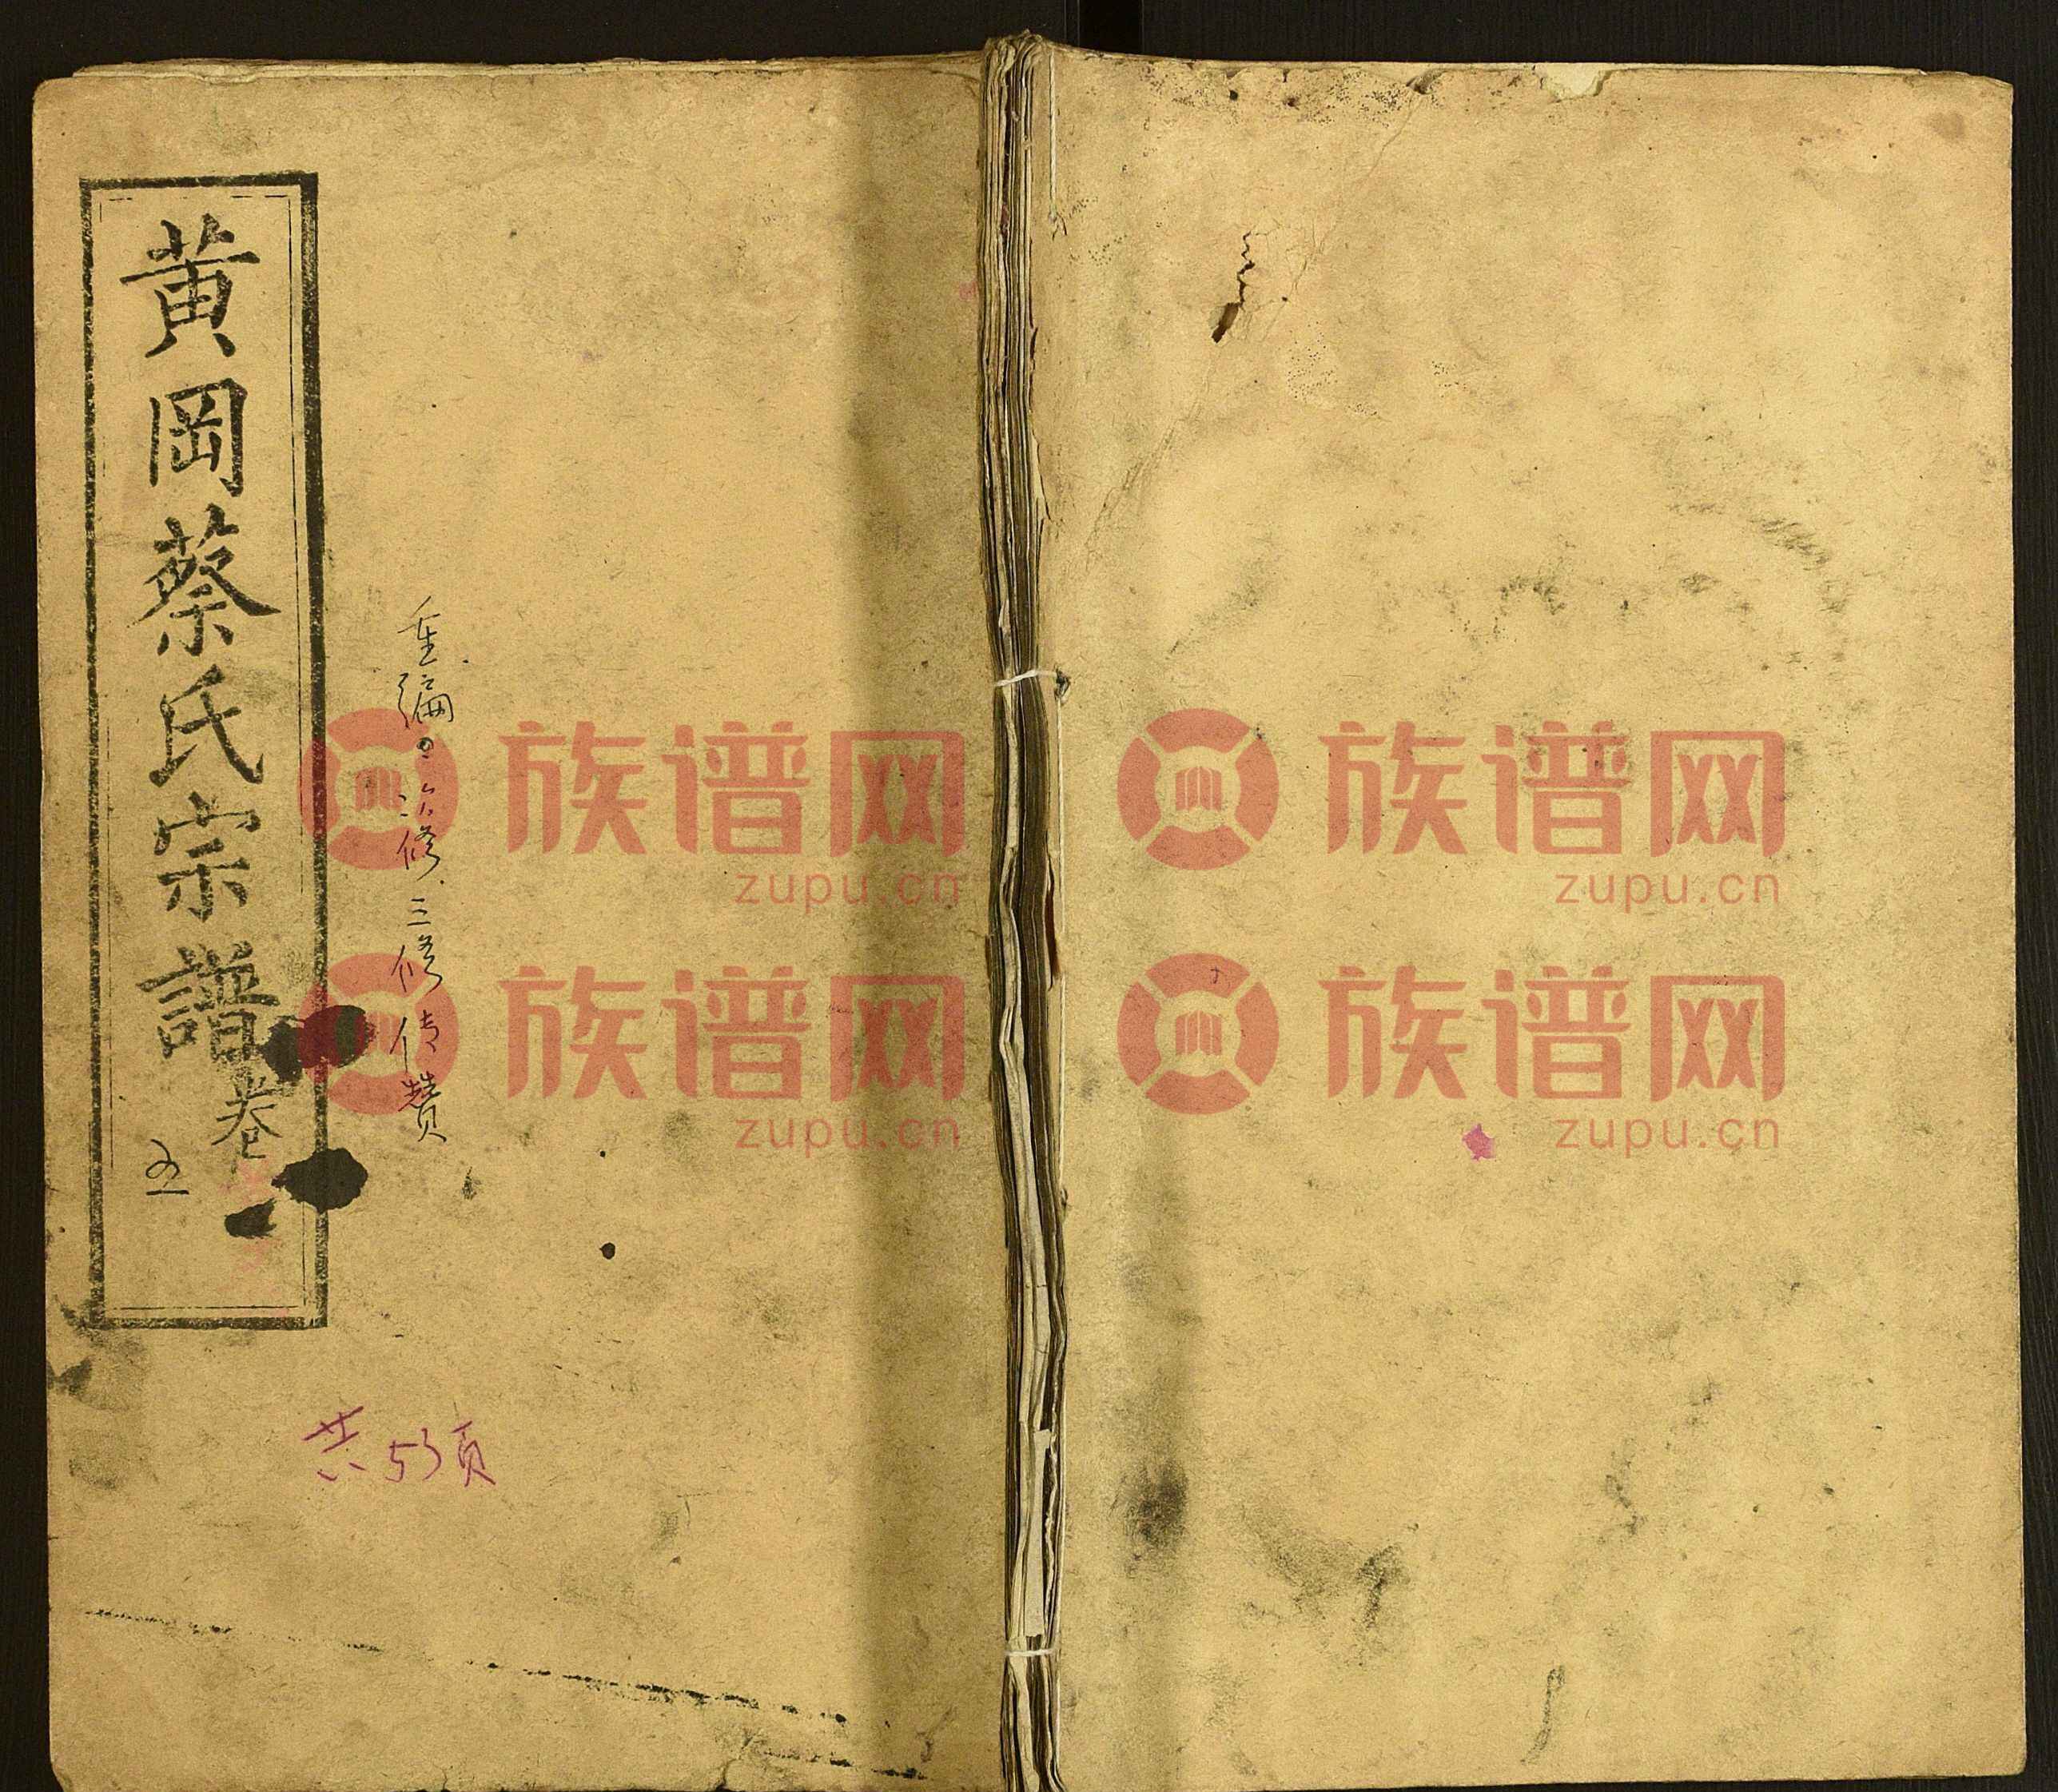 黄岡蔡氏宗譜
卷
五
三修传赞
共53页
族谱网
zupu.cn
族谱网
zupu.cn
族谱网
zupu.cn
族谱网
zupu.cn